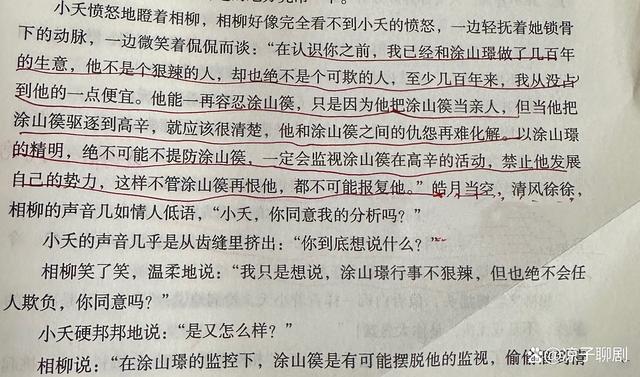 小夭愤怒地瞪着相柳，相柳好像完全看不到小夭的愤怒，一边轻抚着她锁骨
下的动脉，一边微笑着侃侃而谈：“在认识你之前，我已经和涂山璟做了几百年
的生意，他不是个狠辣的人，却也绝不是个可欺的人，至少几百年来，我从没占
到他的一点便宜。他能一再容忍涂山篌，只是因为他把涂山篌当亲人，但当他把
涂山篌驱逐到高辛，就应该很清楚，他和涂山篌之间的仇怨再难化解。以涂山璟
的精明，绝不可能不提防涂山篌，一定会监视涂山篌在高辛的活动，禁止他发展
自己的势力，这样不管涂山篌再恨他，都不可能报复他。”皓月当空，清风徐徐，
相柳的声音几如情人低语，“小夭，你同意我的分析吗？”
小夭的声音几乎是从齿缝里挤出：“你到底想说什么？”
相柳笑了笑，温柔地说：“我只是想说，涂山璟行事不狠辣，但也绝不会任
人欺负，你同意吗？”
小夭硬邦邦地说：“是又怎么样？”
相柳说：“在涂山璟的监控下，涂山篌是有可能摆脱他的监视，偷偷
凉子聊剧